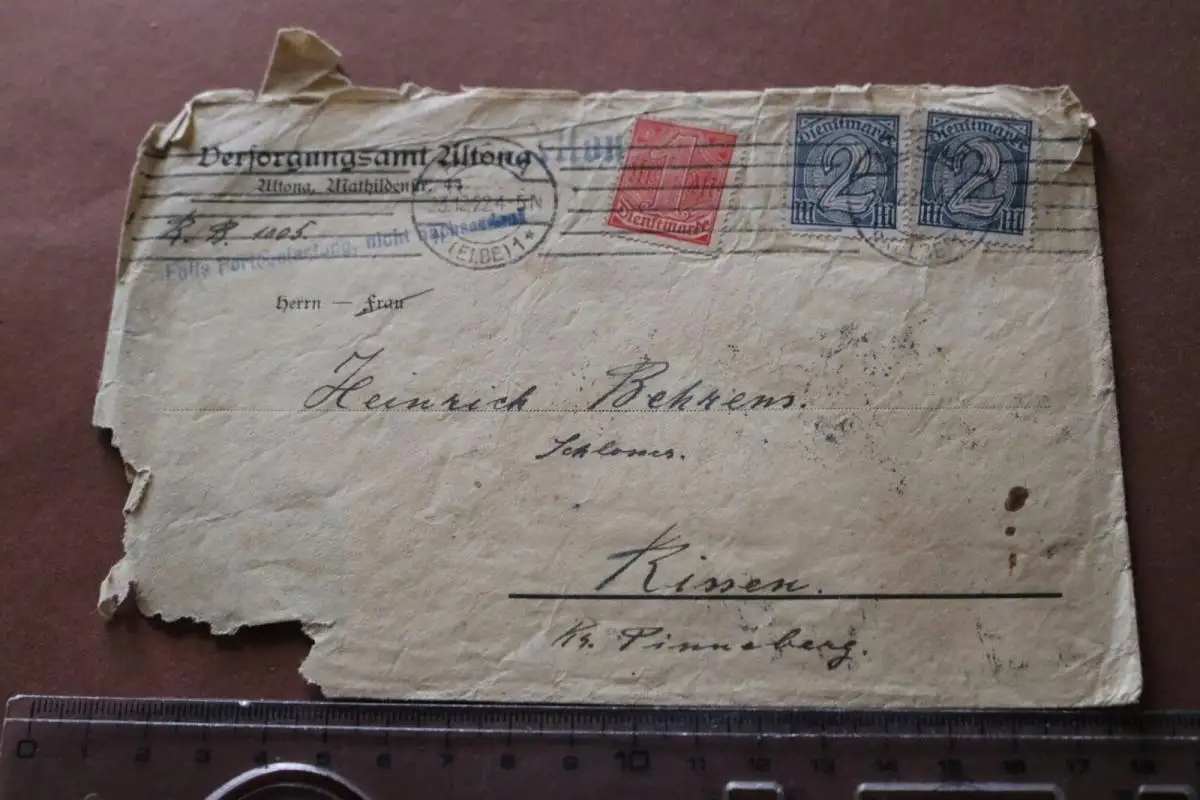 Versorgungsamt Altona
Altona, Mathildenstr. 44
K. B. 1005
Falls Portobelastung, nicht nachsenden!
ALTONA
13.12.22 4-5N
(ELBE) 1 *
1
Dienstmarke
Dienstmarke
2
M M
Dienstmarke
2
M M
Herrn — Frau
Heinrich Behrens.
Rissen.
Kr. Pinneberg.
0 1 2 3 4 5 6 7 8 9 10 11 12 13 14 15 16 17 18